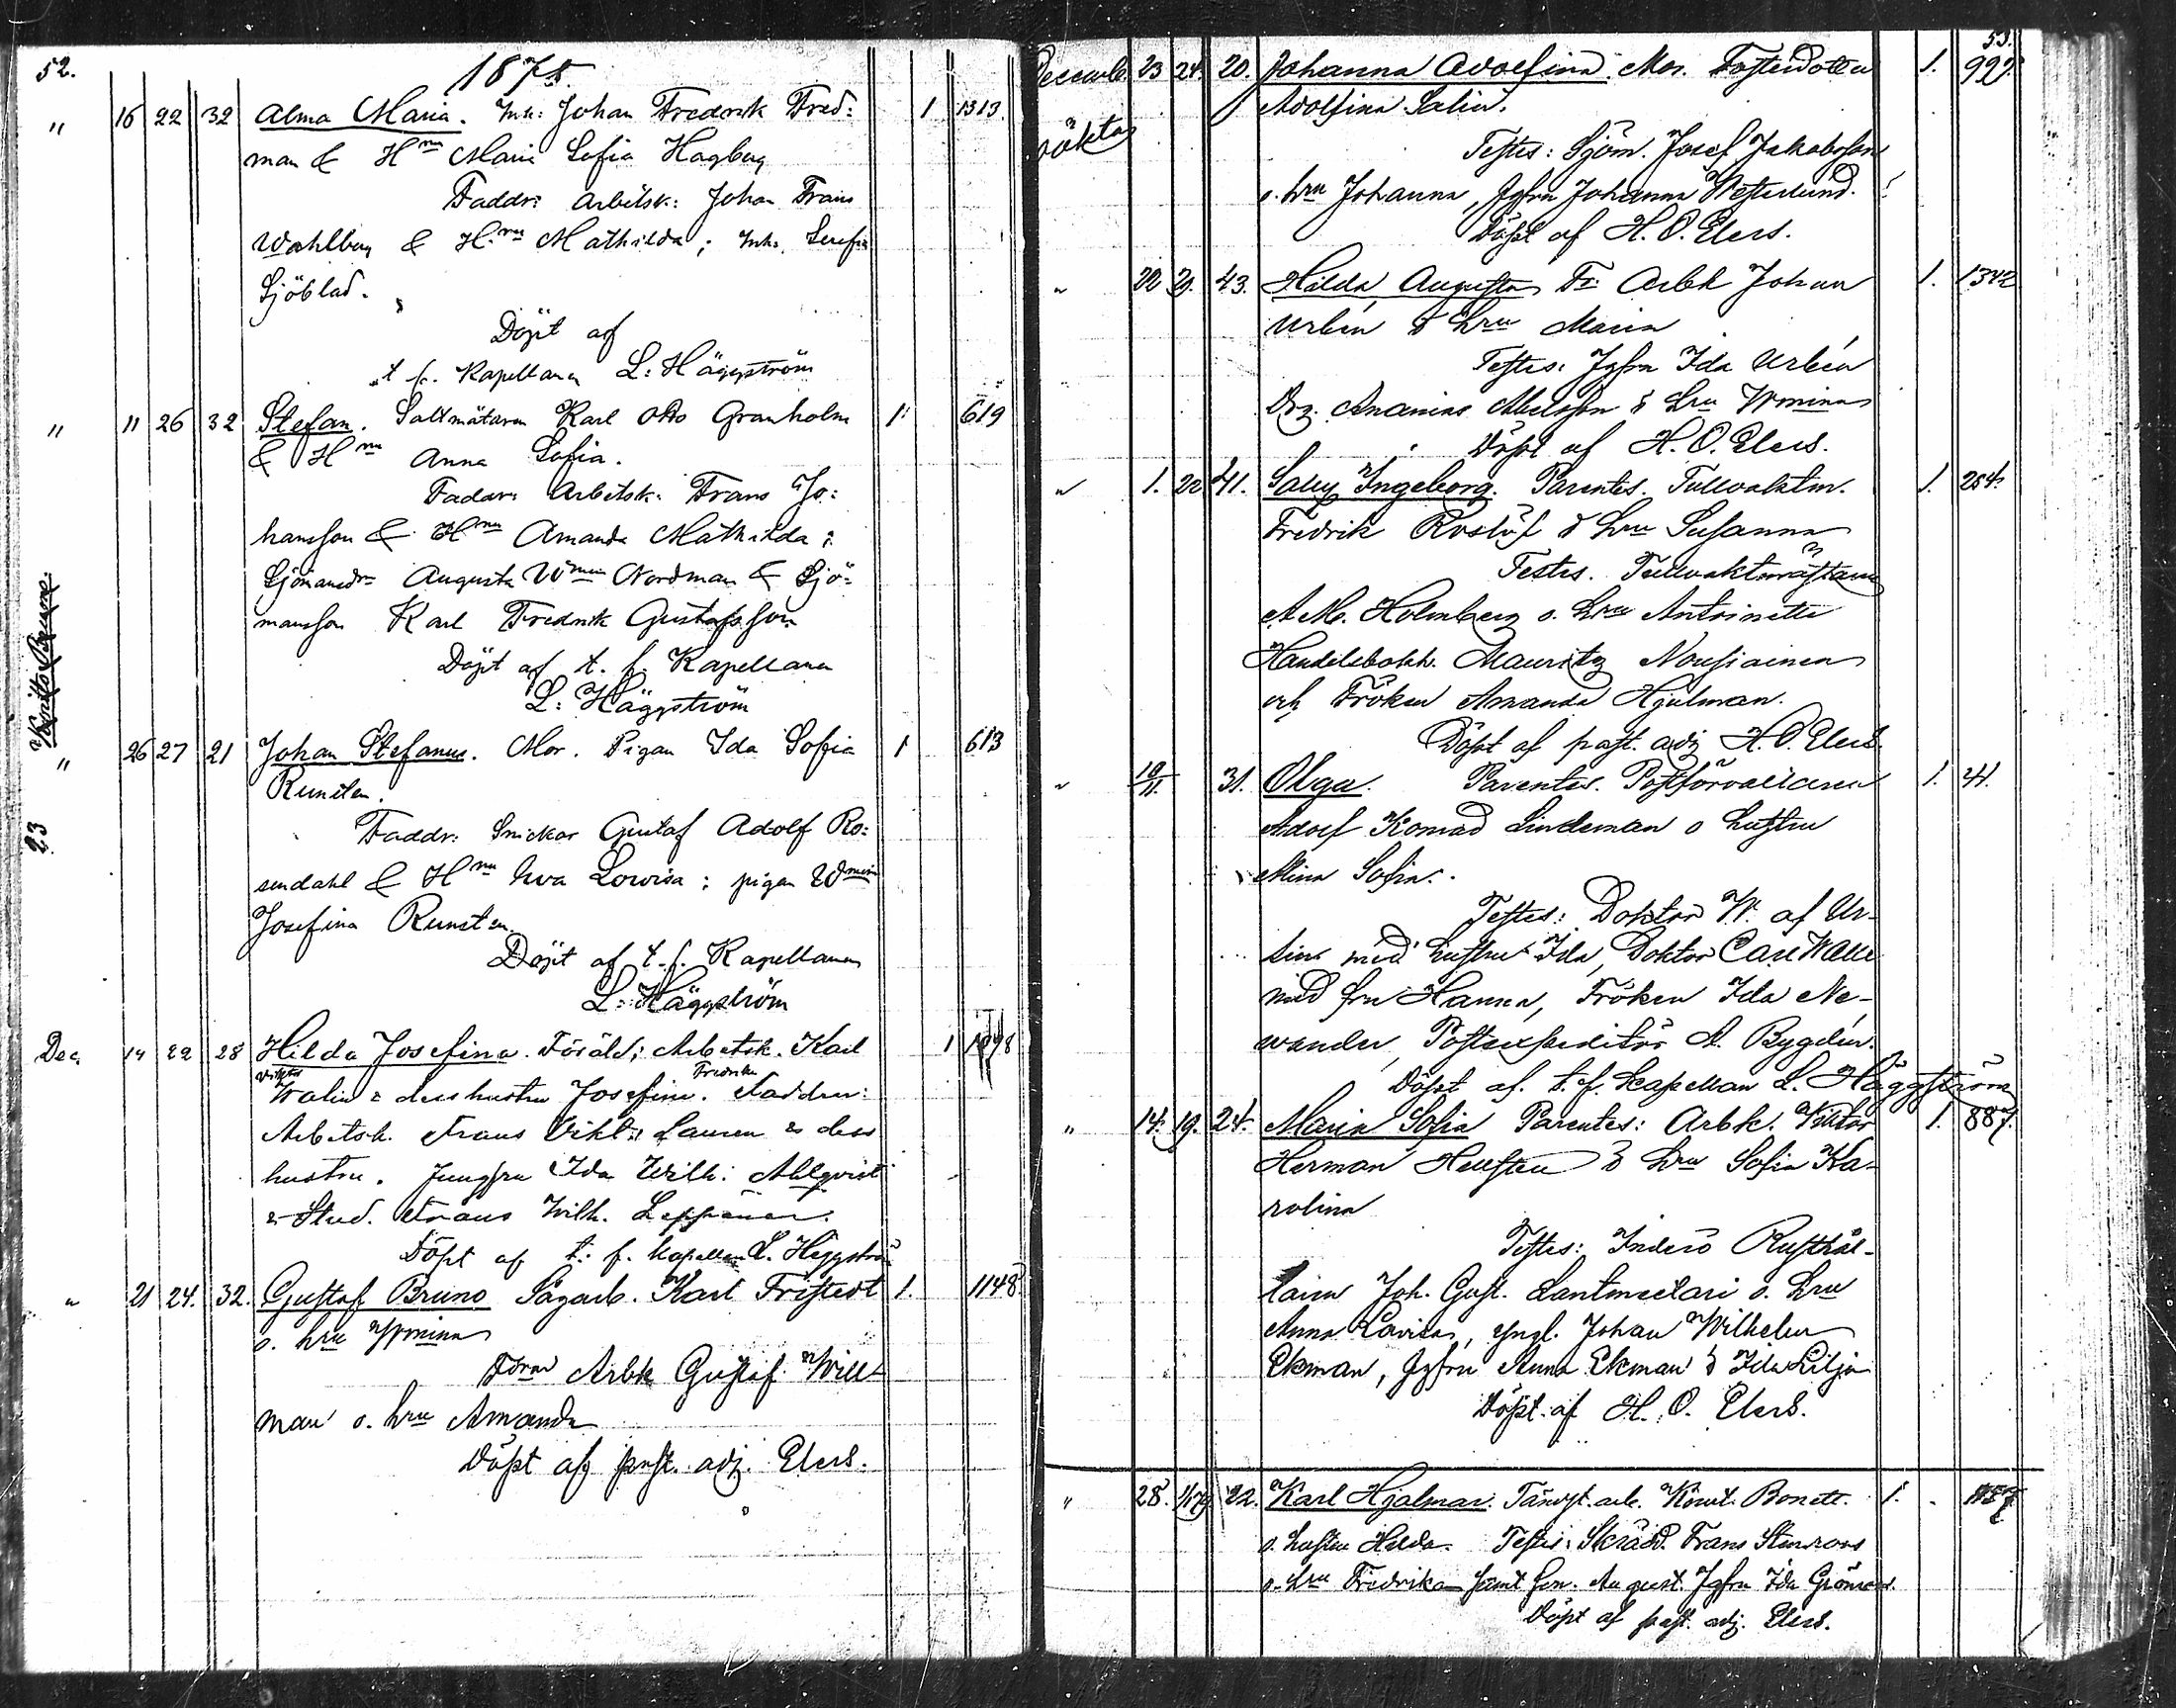 52.
1878.
" 16 22 32 Alma Maria. Inh: Johan Fredrik Fred= 1 1313.
man & Hru Maria Sofia Hagberg
Faddr: Arbetsk: Johan Frans
Wahlberg & Hru Mathilda; Inh. Serafia
Sjöblad.
Döpt af
t. f. Kapellanen L: Häggström
" 11 26 32 Stefan. Saltmätaren Karl Otto Granholm 1 619
& Hru Anna Sofia.
Faddr: Arbetsk: Frans Jo=
hansson & Hru Amanda Mathilda;
Sjömansdr Augusta Wmina Nordman & Sjö=
mansson Karl Fredrik Gustafsson
Döpt af t. f. Kapellanen
L: Häggström
" 26 27 21 Johan Stefanus. Mor. Pigan Ida Sofia 1 613
Runsten.
Faddr: Snickar Gustaf Adolf Ro=
sendahl & Hru Eva Lovisa; pigan Wmina
Josefina Runsten.
Döpt af t. f. Kapellanen
L: Häggström
23
Dec. 14 22 28 Hilda Josefina. Föräld; Arbetsk. Karl 1
Viktor Fredrika
Walin & dess hustru Josefina. Faddrar:
Arbetsk. Frans Vikt: Lauren & dess
hustru. Jungfru Ida Wilh: Ahlqvist
& Stud. Frans Wilh. Leppänen.
Döpt af t. f. kapellan L. Häggström
" 21 24. 32. Gustaf Bruno Sågarb. Karl Fristedt 1. 1148
o. hru Wmina
Arbk Gustaf Will-
man o. hru Amanda
Döpt af past. adj. Elers.
53.
Decemb. 23 24. 20. Johanna Adolfina. Mor. Fosterdotter 1. 997.
Adolfina Salin.
oäkta
Testes: Sjöm. Josef Jakobsson
o. hru Johanna, Jgfru Johanna Westerlund.
Döpt af H. O. Elers.
" 22 29. 43. Hilda Augusta Fr: Arbk Johan 1. 1342
Urbén & hru Maria
Testes: Jgfru Ida Urbén
Drg. Ananias Abelsson & hru Wmina
Döpt af H. O. Elers.
" 1. 22 41. Saly Ingeborg. Parentes. Tullvaktm. 1. 254.
Fredrik Roslöf & hru Susanna
Testes. Tullvaktmästaren
A. M. Holmberg o. hru Antoinette
Handelsbokh. Mauritz Nousiainen
och Fröken Amanda Hjulman.
Döpt af past. adj H. O. Elers.
" 19/11. 31. Olga. Parentes. Postförvaltaren 1. 41.
Adolf Konrad Lindeman o hustru
Mina Sofia.
Testes: Doktor W. af Ur-
sin med hustru Ida, Doktor Carl Walle
med fru Hanna, Fröken Ida Ne-
wander, Postexpeditör A. Bygdén.
Döpt af. t. f. kapellan L. Häggström
" 14. 19. 24. Maria Sofia Parentes: Arbk. Viktor 1. 887.
Herman Hellsten & hru Sofia Ka-
rolina
Testes: Inderö Rusthål-
laren Joh. Gust. Lantmeilari o. hru
Anna Lovisa, yngl. Johan Wilhelm
Ekman, Jgfru Anna Ekman & Ida Lilja
Döpt af H. O. Elers.
" 28. 1/1 79. 22. Karl Hjalmar. Konst. Bonett. 1.
o. hustru Hilda. Testes: Skrädd. Frans Stenroos
o. hru Fredrika samt son. August. Jgfru Ida Grönroos.
Döpt af past. adj. Elers.